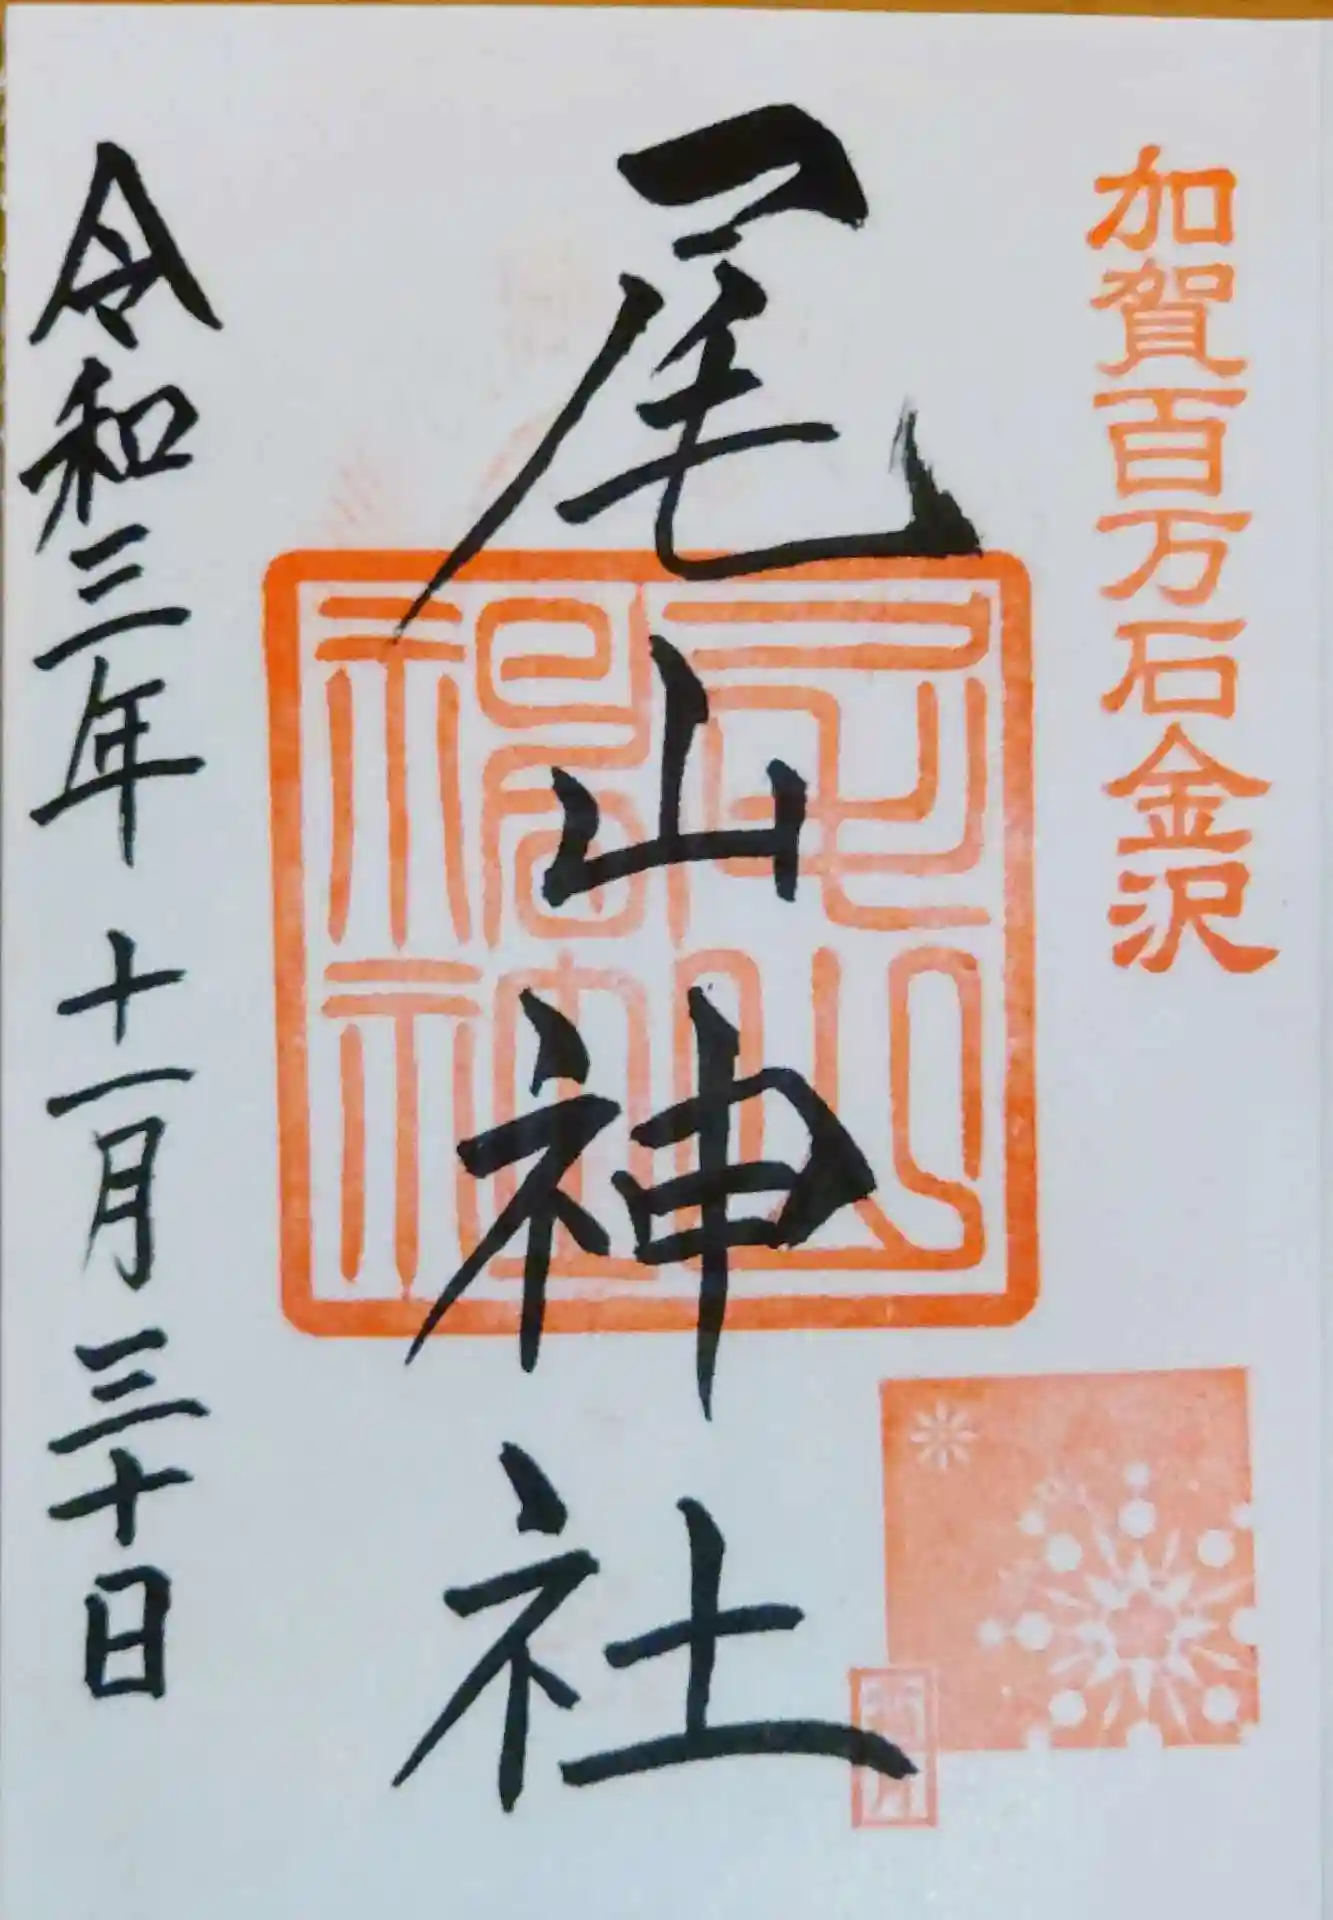 加賀百万石金沢
尾山神社
尾山神社
令和三年 十一月 三十日